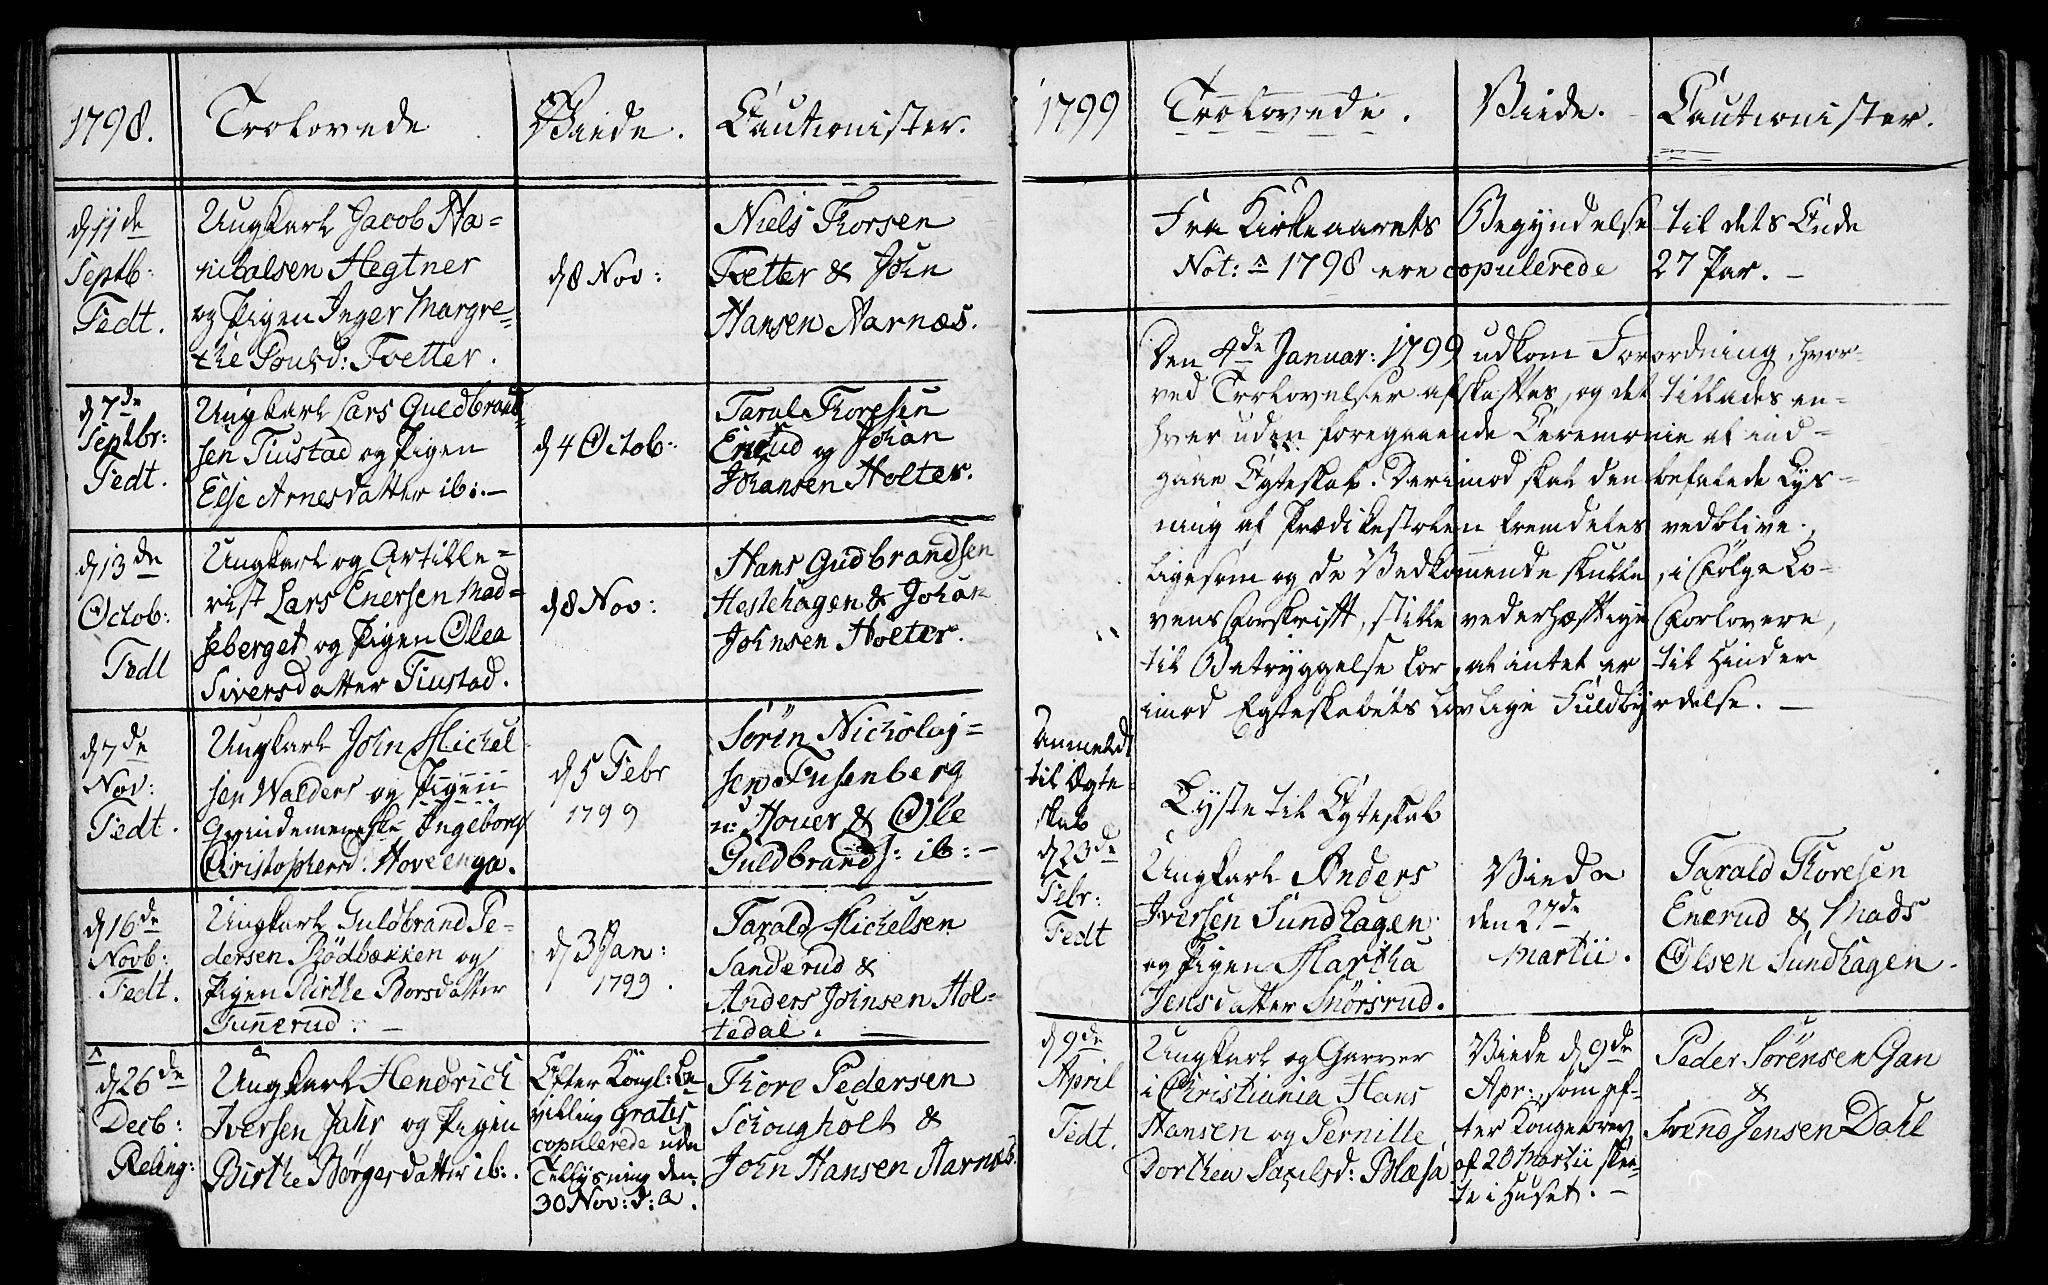 1798.
Trolovede
Viede.
Cautionister.
d 11de
Septb:
Fedt.
Ungkarl Jacob Ha-
nibalsen Hegtner
og Pigen Inger Margre-
the Povlsd: Tvetter.
d 8 Nov:
Niels Thorsen
Tvetter & John
Hansen Aarnæs.
d 7de
Septbr:
Fedt.
Ungkarl Lars Guldbrand-
sen Tiustad og Pigen
Else Arnesdatter ib:.-
d 4 Octob:
Taral Thoresen
Enerud og Johan
Johansen Holter.
d 13de
Octob:
Fedt
Ungkarl og Artille-
rist Lars Enersen Mad-
seberget og Pigen Olea
Siversdatter Tiustad.
d 8 Nov:
Hans Gudbrandsen
Hestehagen & Johan
Johnsen Holter.
d 7de
Nov:
Fedt.
Ungkarl John Michel-
sen Walders og Pigen
Qvindemenneske Ingeborg
Christophersd: Hoveenga.
d 5 Febr
1799
Sören Nicholaj-
sen Fusenberg
Houer & Ole
Guldbrands: ib: -
d 16de
Novb:
Fedt.
Ungkarl Guldbrand Pe-
dersen Rödbækken og
Pigen Birthe Borsdatter
Tunnerud. -
d 3 Jan:
1799.
Tarald Michelsen
Sanderud &
Anders Johnsen Hol-
tedal. -
d 26de
Decb:
Reling:
Ungkarl Hendrich
Iversen Jahr og Pigen
Birthe Börgersdatter ib:.
Efter Kongl: Be-
villing gratis
copulerede uden
Tillysning den
30 Nov: d: a.
Thore Pedersen
Schougholt &
John Hansen Aarnæs.
1799
Trolovede.
Viede.
Cautionister.
Fra Kirkeaarets Begyndelse til dets Ende
Not: 1798 ere copulerede 27 Par. -
Den 4de Januar: 1799 udkom Forordning, hvor-
ved Trolovelser afskaffes, og det tillades en-
hver uden foregaaende Ceremonie at ind-
gaae Egteskab. Derimod skal den befalede Lys-
ning af Prædikestolen fremdeles vedblive,
ligesom og de Vedkommende skulle, i Fölge Lo-
vens Forskrift, stille vederhæftige Forlovere,
til Betryggelse for, at intet er til Hinder
imod Egteskabets lovlige Fuldbyrdelse. -
Anmeldt
til Ægte-
skab
d 23de
Febr:
Fedt
Lyste til Egteskab
Ungkarl Anders
Iversen Sundhagen
og Pigen Martha
Jensdatter Snörsrud.
Viede
den 27de
Martii.
Tarald Thoresen
Enerud & Mads
Olsen Sundhagen.
d 9de
April
Fedt.
Ungkarl og Garver
i Christiania Hans
Hansen og Pernille
Dorthea Paulsd: Blæsa
Viede d 9de
Apr: som ef-
ter Kongebrev
af 20 Martii skee-
te i Huset. -
Peder Sörensen Gan
&
Svend Jensen Dahl